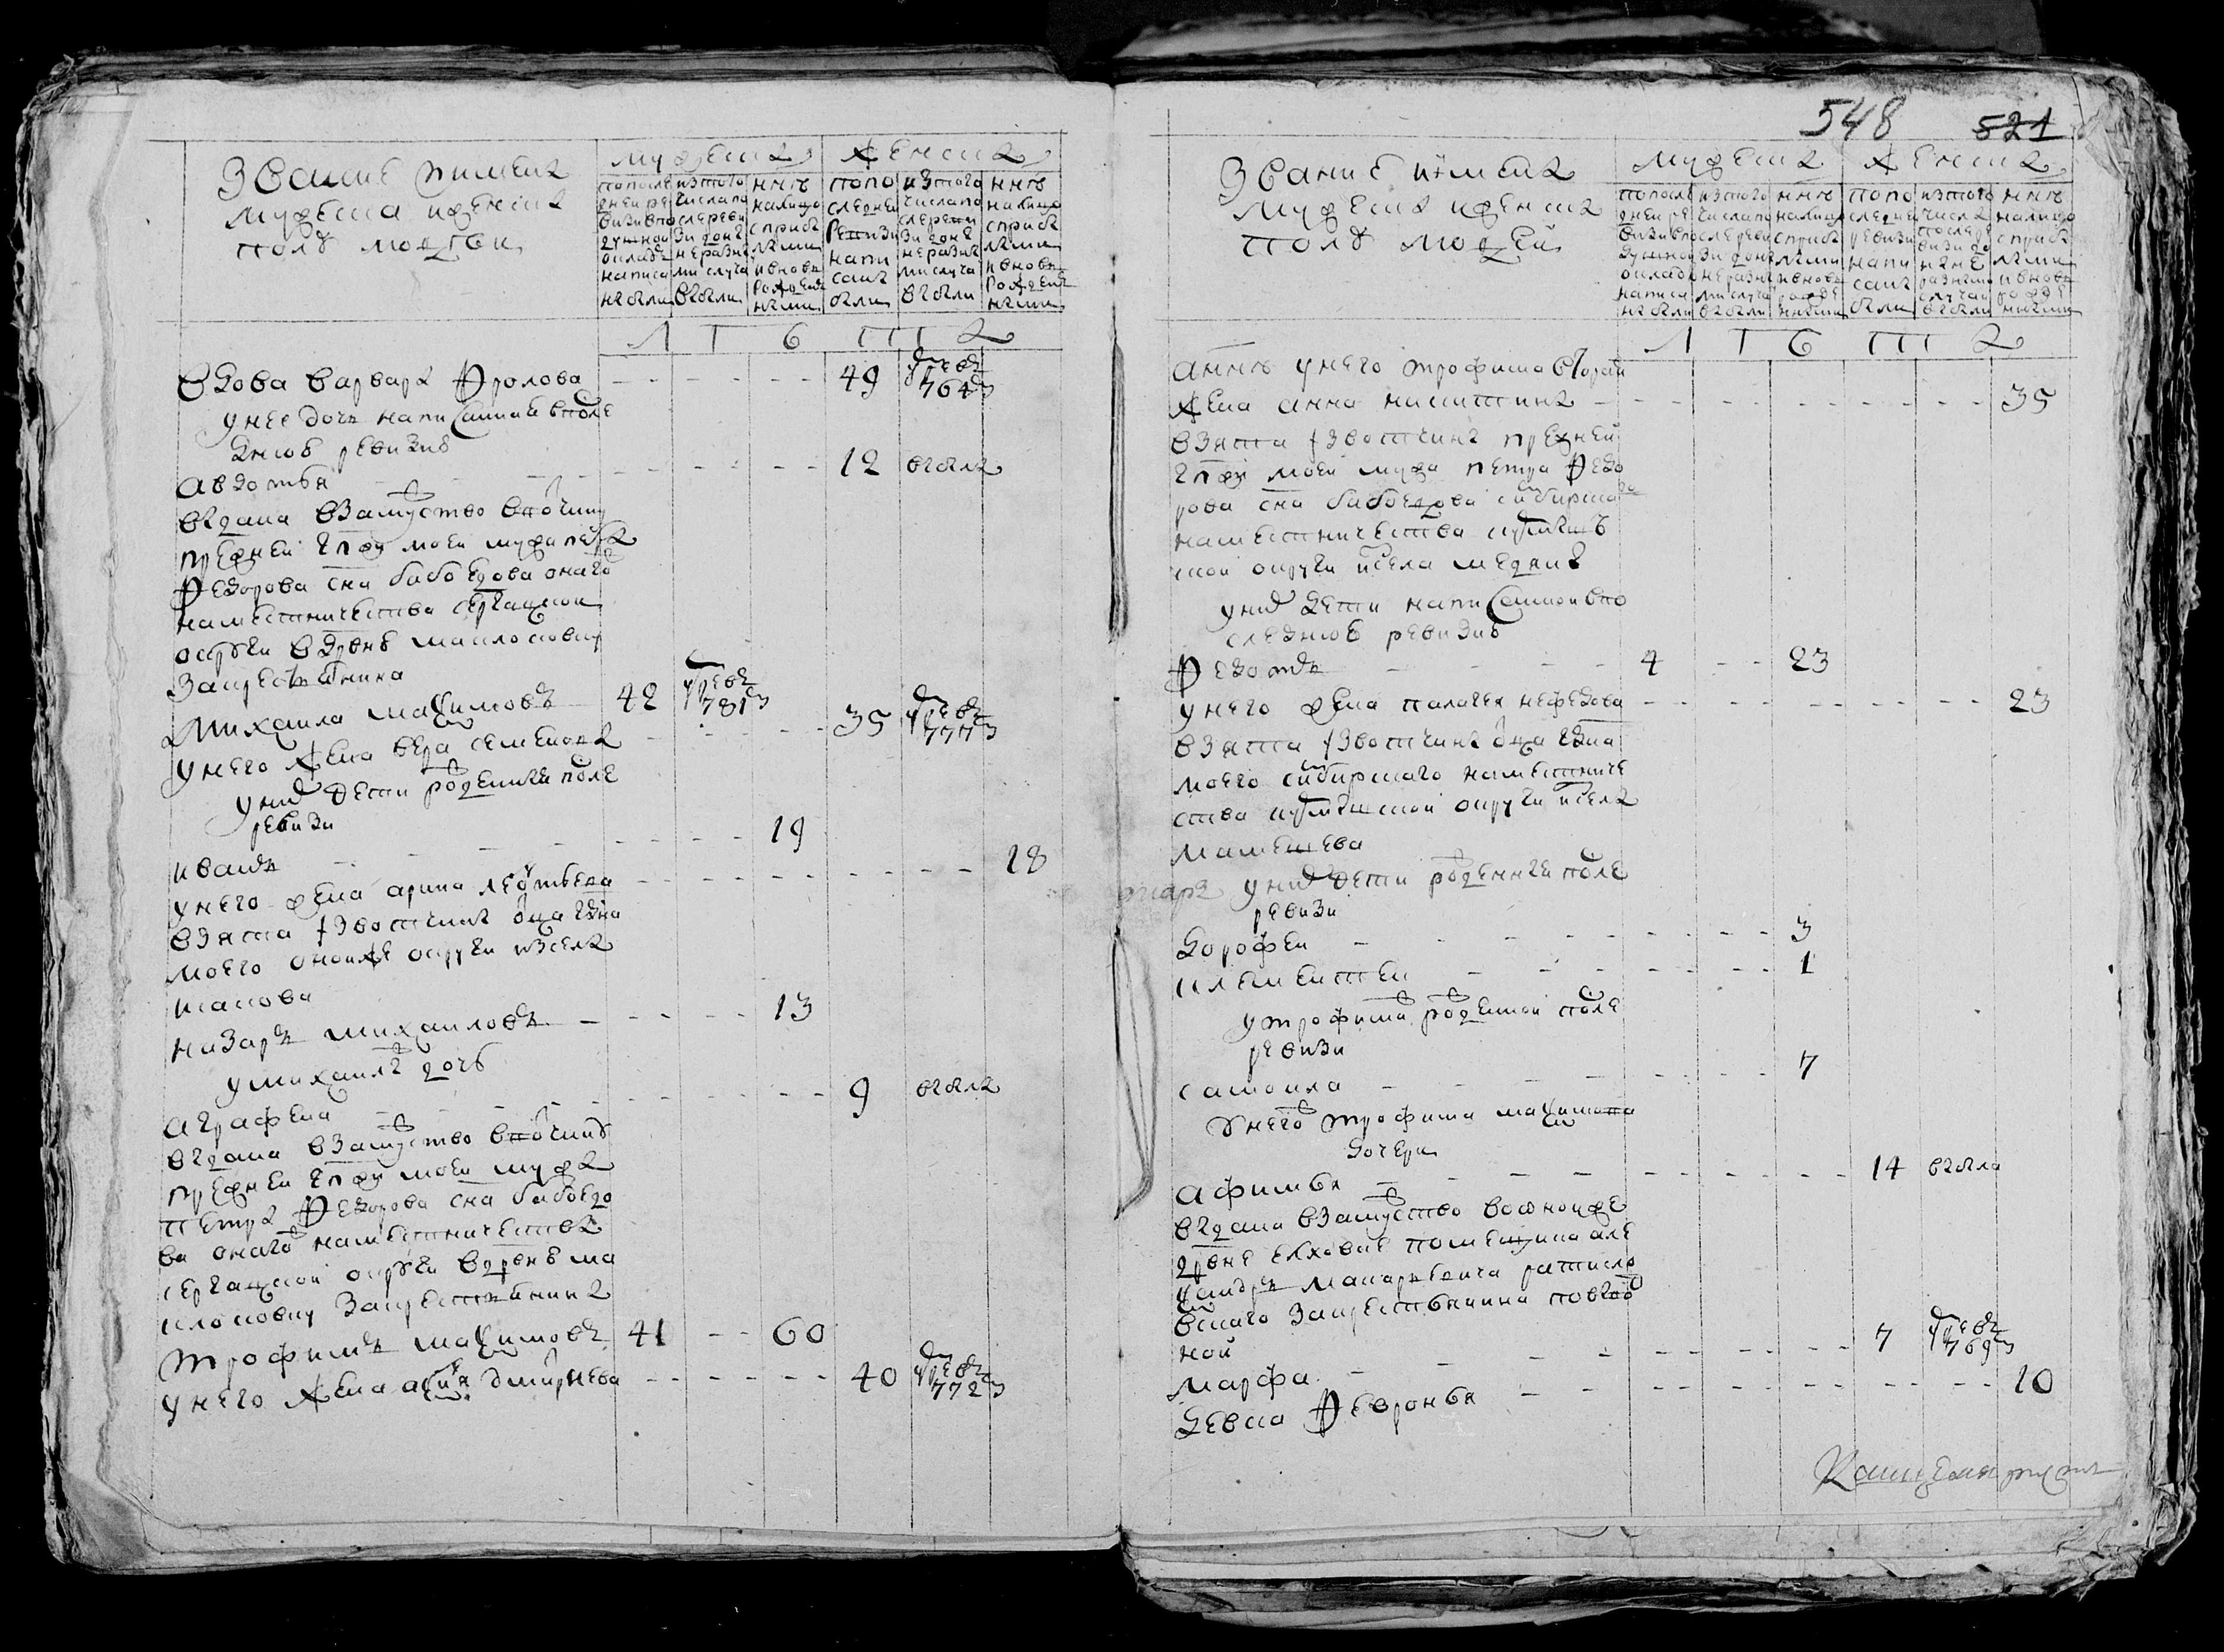 Звание и имена
мужеска и женска
полу людеи
мужеска
женска
по после
дней ре
визии в по
душной
оклад
написа
ны были
из того
числа по
сле реви
зии до нне
разны
ми случа
и выбыли
нне
налицо
с прибы
лыми
и вновь
рожден
ными
по по
следней
ревизи
напи
саны
были
из того
числа по
сле реви
зи до нне
разны
ми случа
и выбыли
нне
налицо
с прибы
лыми
и вновь
рожден
ными
л е т а
вдова варвара Фролова - - - - - - 49 умре в 764 г
у нее дочь написанная в после
днюю ревизию
авдотья - - - - - - 12 выбыла
выдана в замуство в вотчину
прежней гпжи моей мужа петра
Федорова сна бабоедова онаго
наместничества сергацкой
округи в дрвню маклоковку
за крестьянина
Михаила максимовъ 42 умре в 781 г
у него жена вера семенова - - - - 35 умре в 777 г
у них дети рожденные после
ревизи
иванъ - - - - 19
у него жена арина леонтьева - - - - - - - - 18
взята из вотчины отца
моего оной же округи из села
шапова
назаръ михаиловъ - - - - - 13
у михаилы дочь
аграфена - - - - - - 9 выбыла
выдана в замуство в вотчину
прежней гпжи моей мужа
петра Федорова сна бабоедо
ва онаго наместничества
сергацкой округи в дрвню ма
клоковку за крестьянина
трофимъ максимовъ 41 - - 60
у него жена аксинья дмитриева - - - - - - 40 умре в 772 г
548 521
Звание и имена
мужеска и женска
полу людей
мужеска
женска
по после
дней ре
визии в по
душной
оклад
написа
ны были
из того
числа по
сле реви
зи до нне
разны
ми случа
и выбыли
нне
налицо
с прибы
лыми
и вновь
рожде
нными
по по
следней
ревизи
напи
саны
были
из того
числа
после ре
визи до
нне
разными
случаи
выбыли
нне
налицо
с прибы
лыми
и вновь
рожде
нными
л е т а
а нне у него трофима вторая
жена анна никитина - - - - - - - - - 35
взята из вотчины прежней
гпжи моей мужа петра Федо
рова сна бабоедова симбирскаго
наместничества курмыш
ской округи из села медяны
у них дети написанной в по
следнюю ревизию
Федотъ - - - - 4 - - 23
у него жена палагея нефедова - - - - - - - - 23
взята из вотчины отца
моего симбирскаго наместниче
ства курмышской округи из села
мамешева
у них дети рожденныя после
ревизи
дорофеи - - - - - - - - 3
клементеи - - - - - - 1
у трофима рожденной после
ревизи
самоила - - - - - - - 7
у него трофима максимова
дочери
афимья - - - - - - - - 14 выбыла
выдана в замуство во оной же
дрвне елховке помещика але
ксандра макарьевича
за крестьянина по
ной
марфа - - - - - - - 7 умре в 769 г
девка Февронья - - - - - - - - - 10